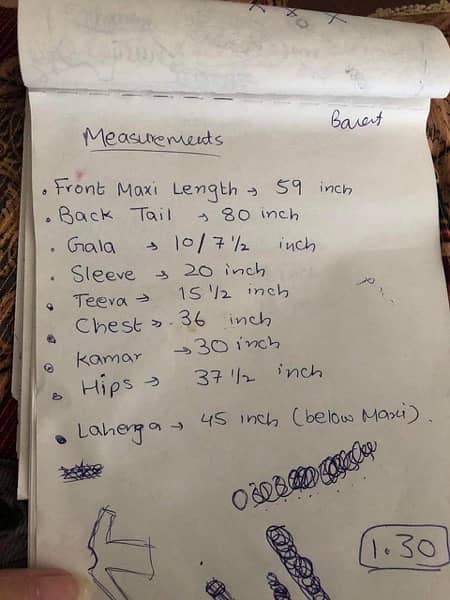 Barat
Measurements
• Front Maxi Length → 59 inch
• Back Tail → 80 inch
• Gala → 10/7 1/2 inch
• Sleeve → 20 inch
• Teera → 15 1/2 inch
• Chest → 36 inch
• Kamar → 30 inch
• Hips → 37 1/2 inch
• Lahenga → 45 inch (below Maxi).
1.30